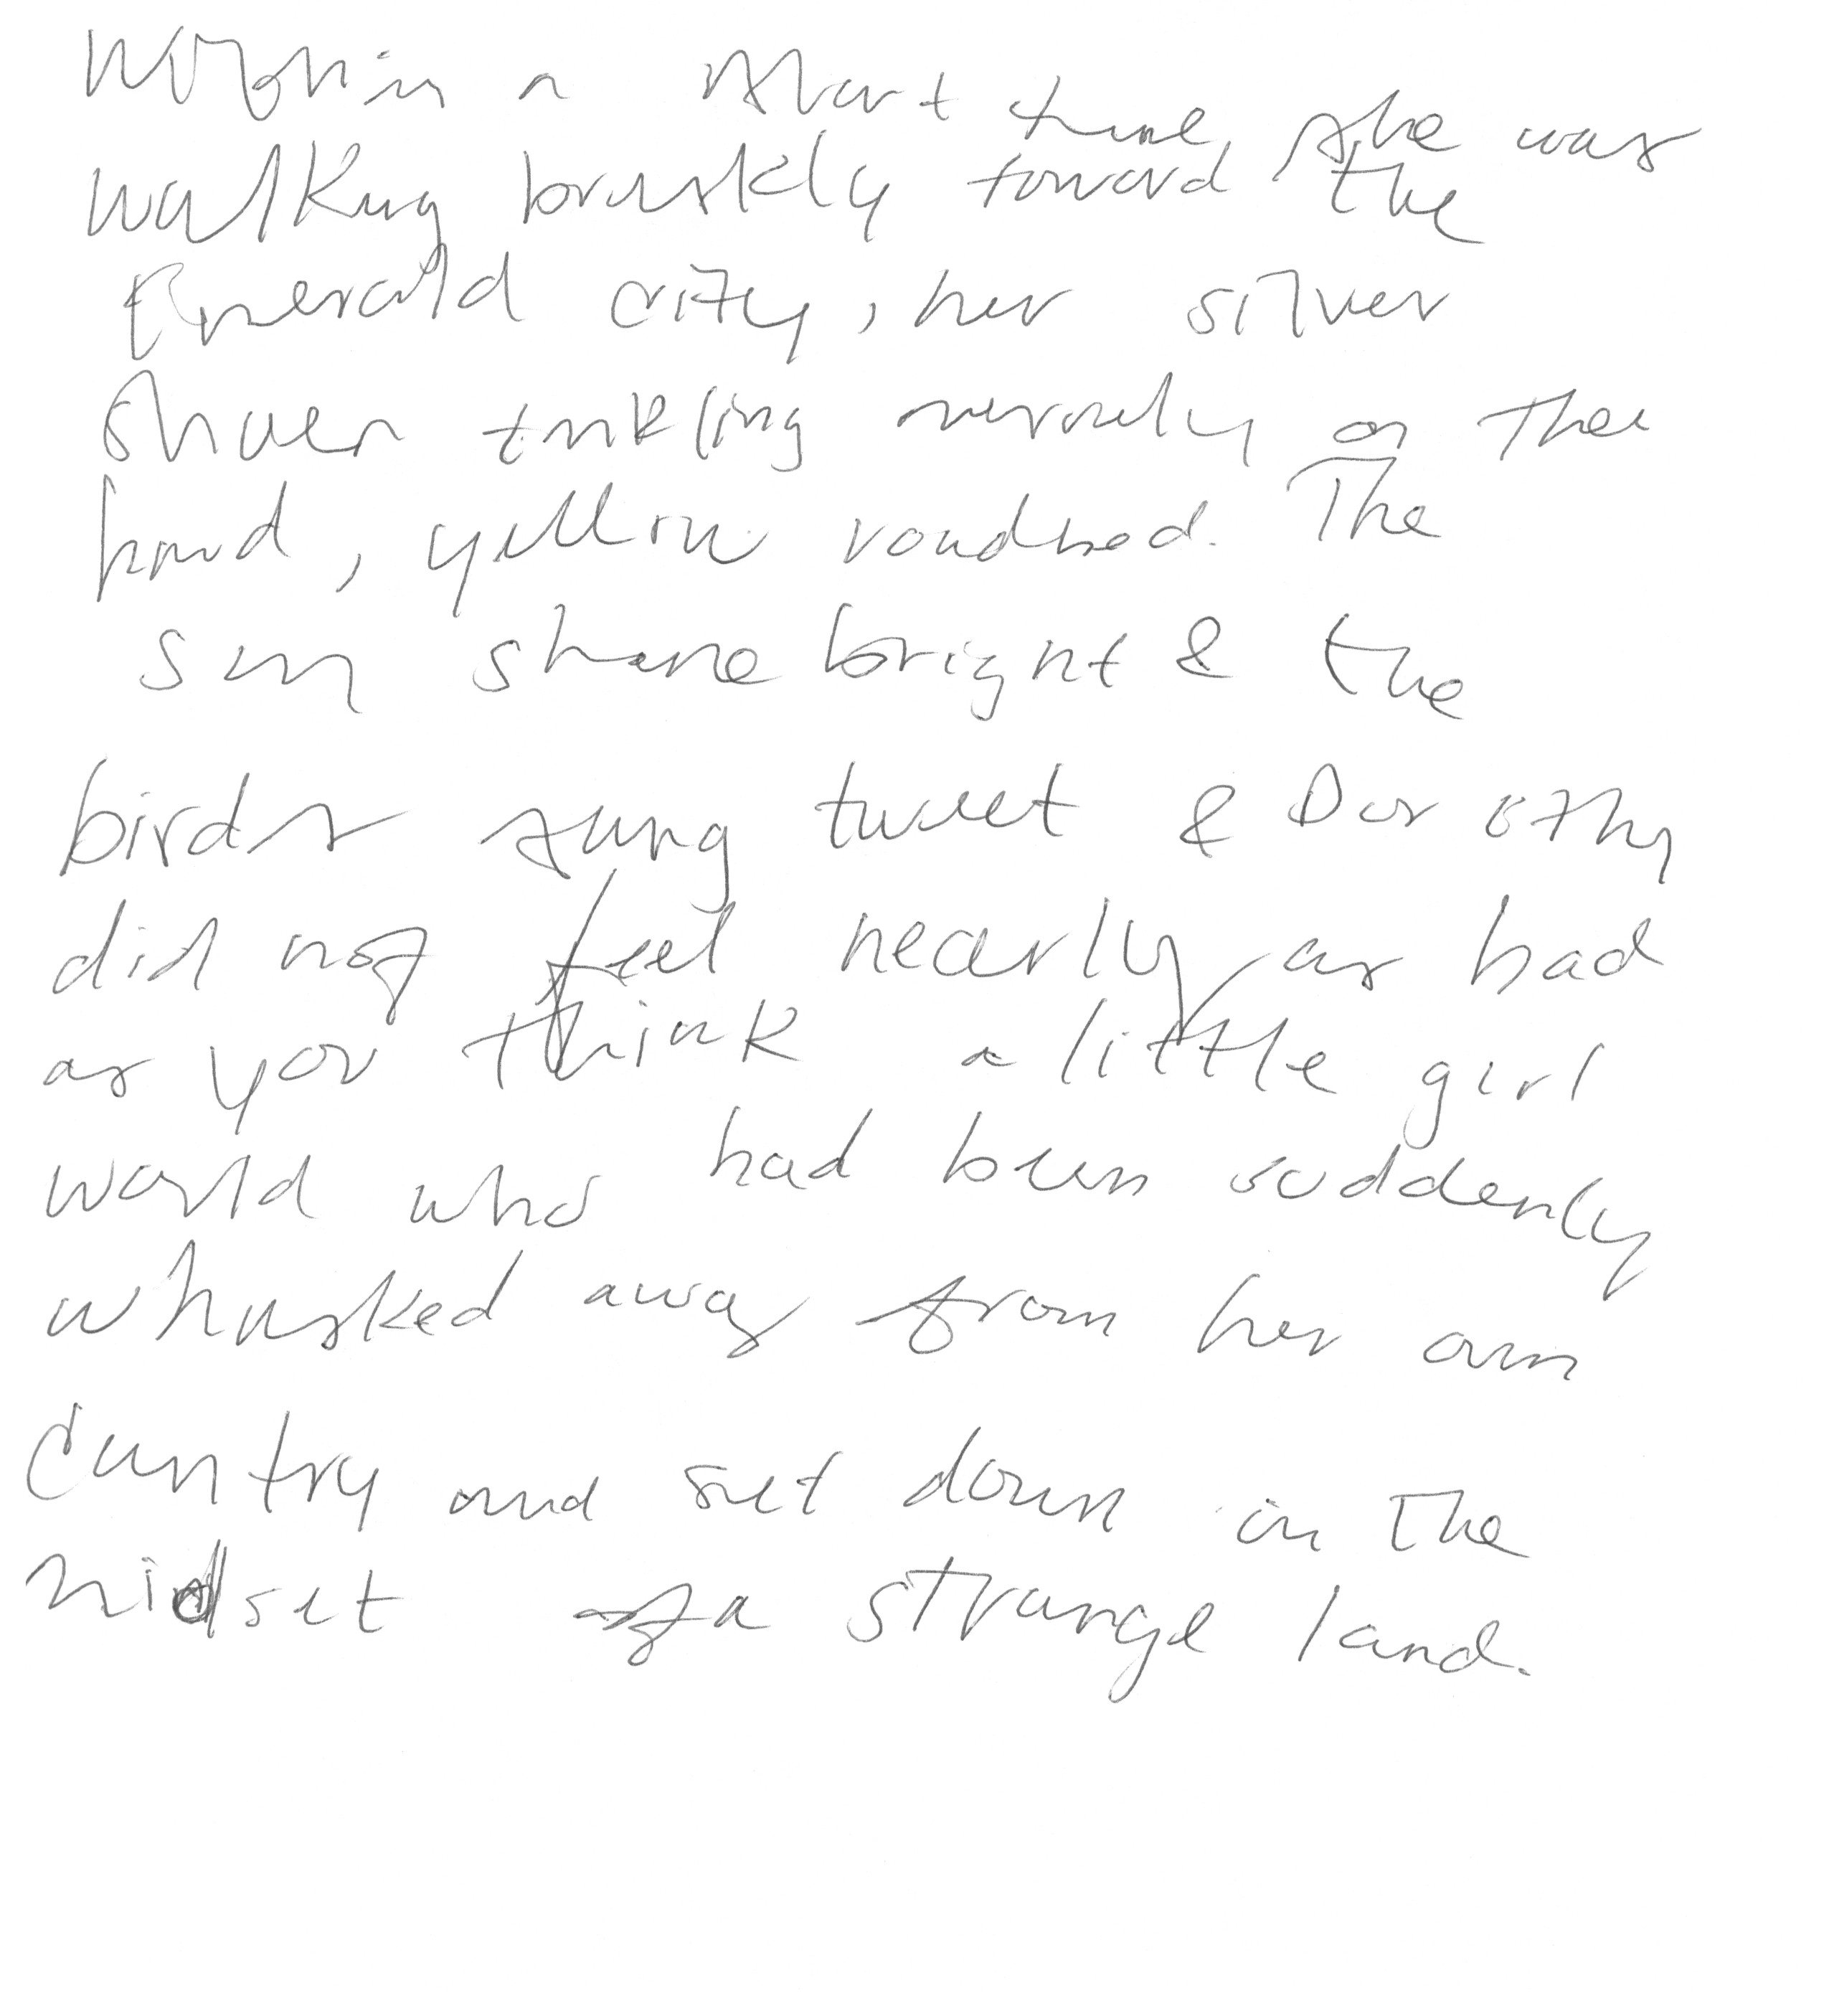 Within a short time she was
walking briskly toward the
Emerald city, her silver
Shoes tinkling merrily on the
hard, yellow roadbed. The
sun shone bright & the
birds sung tweet & Dorothy
did not feel nearly as bad
as you think a little girl
would who had been suddenly
whisked away from her own
Country and set down in the
midset of a strange land.